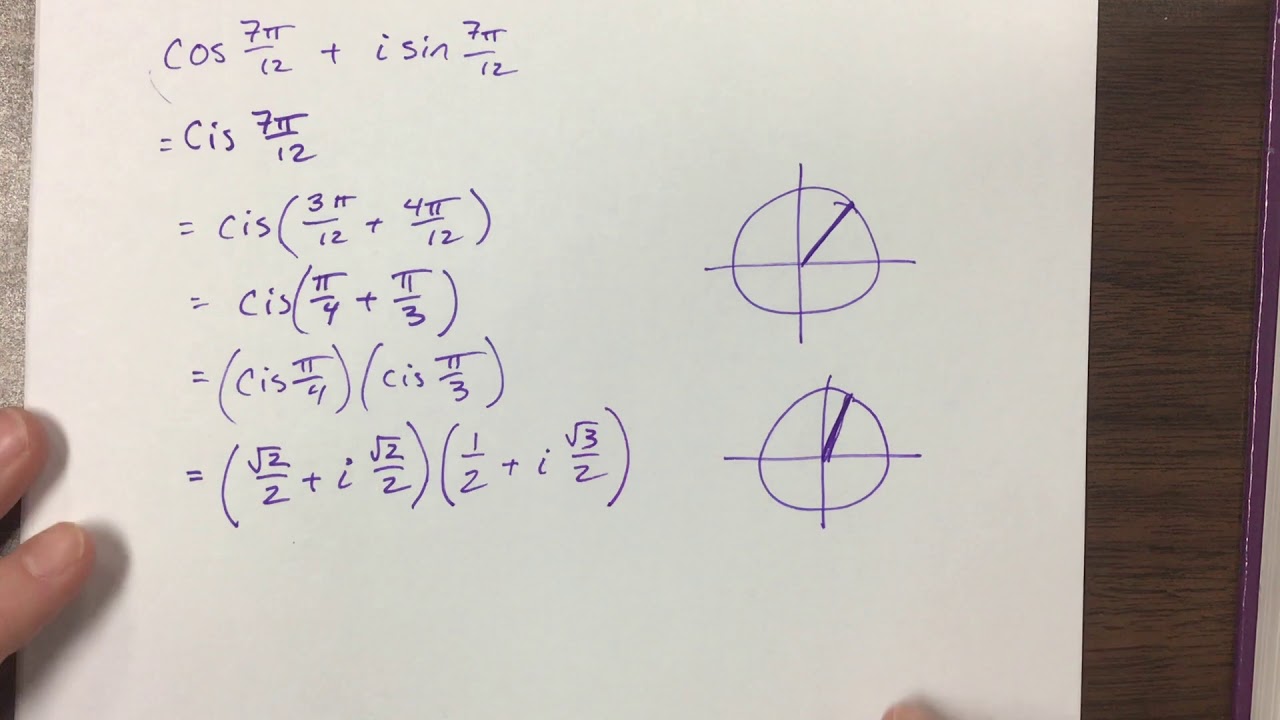 cos 7π/12 + i sin 7π/12
= cis 7π/12
= cis(3π/12 + 4π/12)
= cis(π/4 + π/3)
= (cis π/4)(cis π/3)
= (√2/2 + i √2/2)(1/2 + i √3/2)